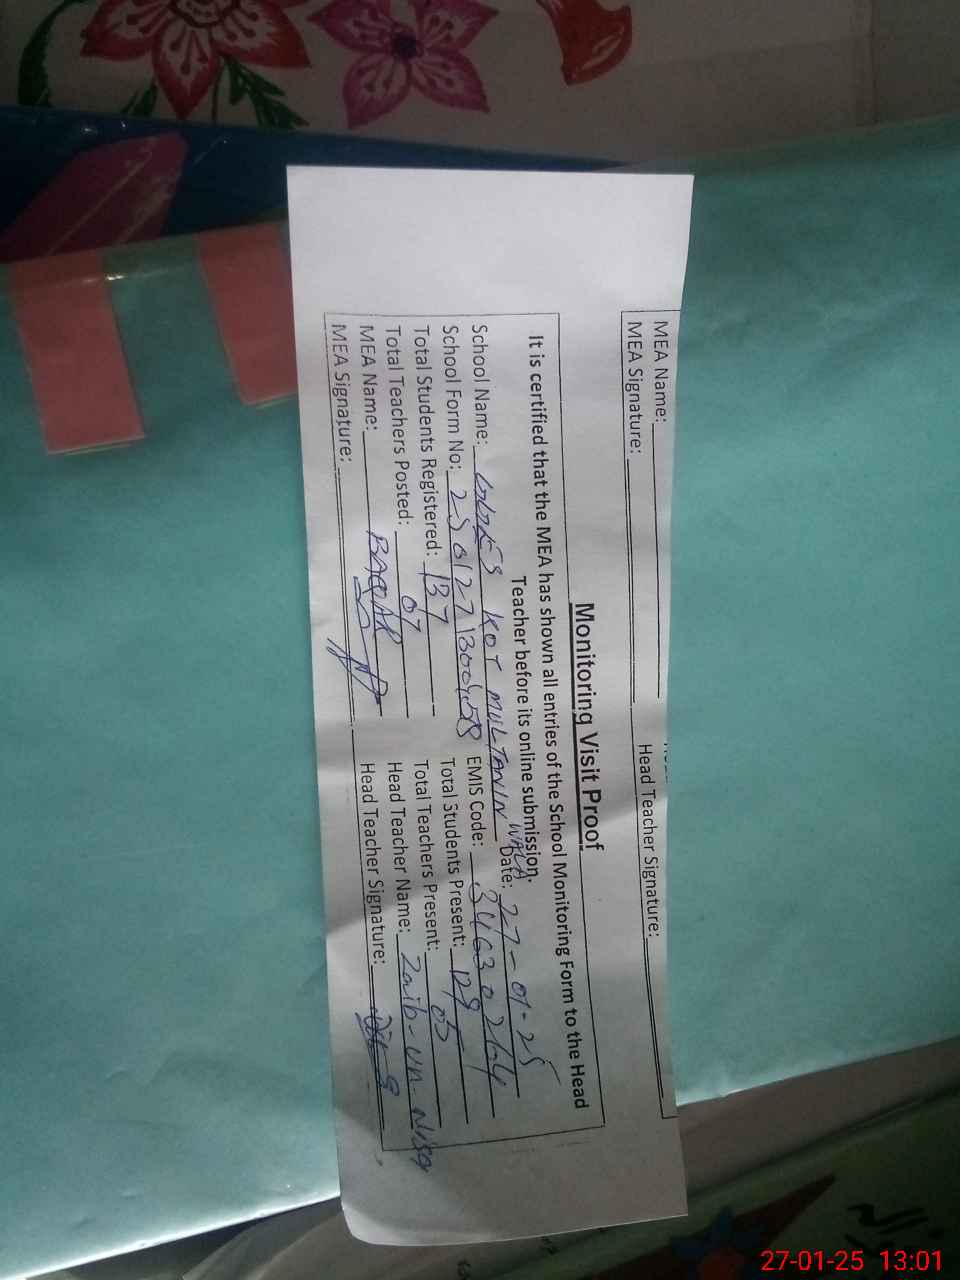 MEA Name:
MEA Signature: Head Teacher Signature:
Monitoring Visit Proof
It is certified that the MEA has shown all entries of the School Monitoring Form to the Head
Teacher before its online submission.
School Name: KOT MULTANIN WALA Date: 27-01-25
School Form No: EMIS Code: 34630264
Total Students Registered: 137 Total Students Present: 129
Total Teachers Posted: 07 Total Teachers Present: 05
MEA Name: BAQAR Head Teacher Name: Zaib-un-Nisa
MEA Signature: Head Teacher Signature:
27-01-25 13:01